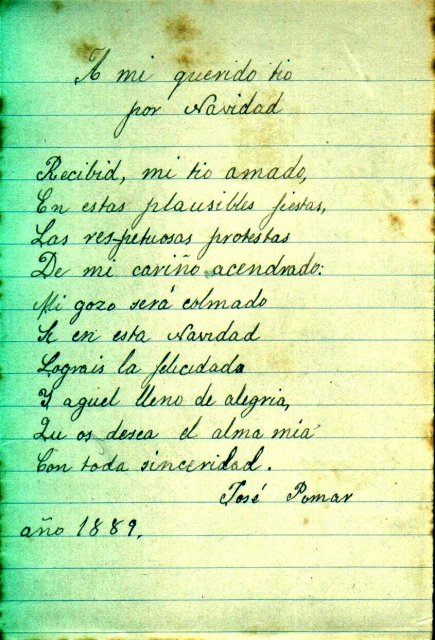 A mi querido tio
por Navidad
Recibid, mi tio amado,
En estas plausibles fiestas,
Las respetuosas protestas
De mi cariño acendrado:
Mi gozo será colmado
Si en esta Navidad
Lograis la felicidada
Y aquel lleno de alegria,
Qu os desea el alma mia
Con toda sinceridad.
José Pomar
año 1889.